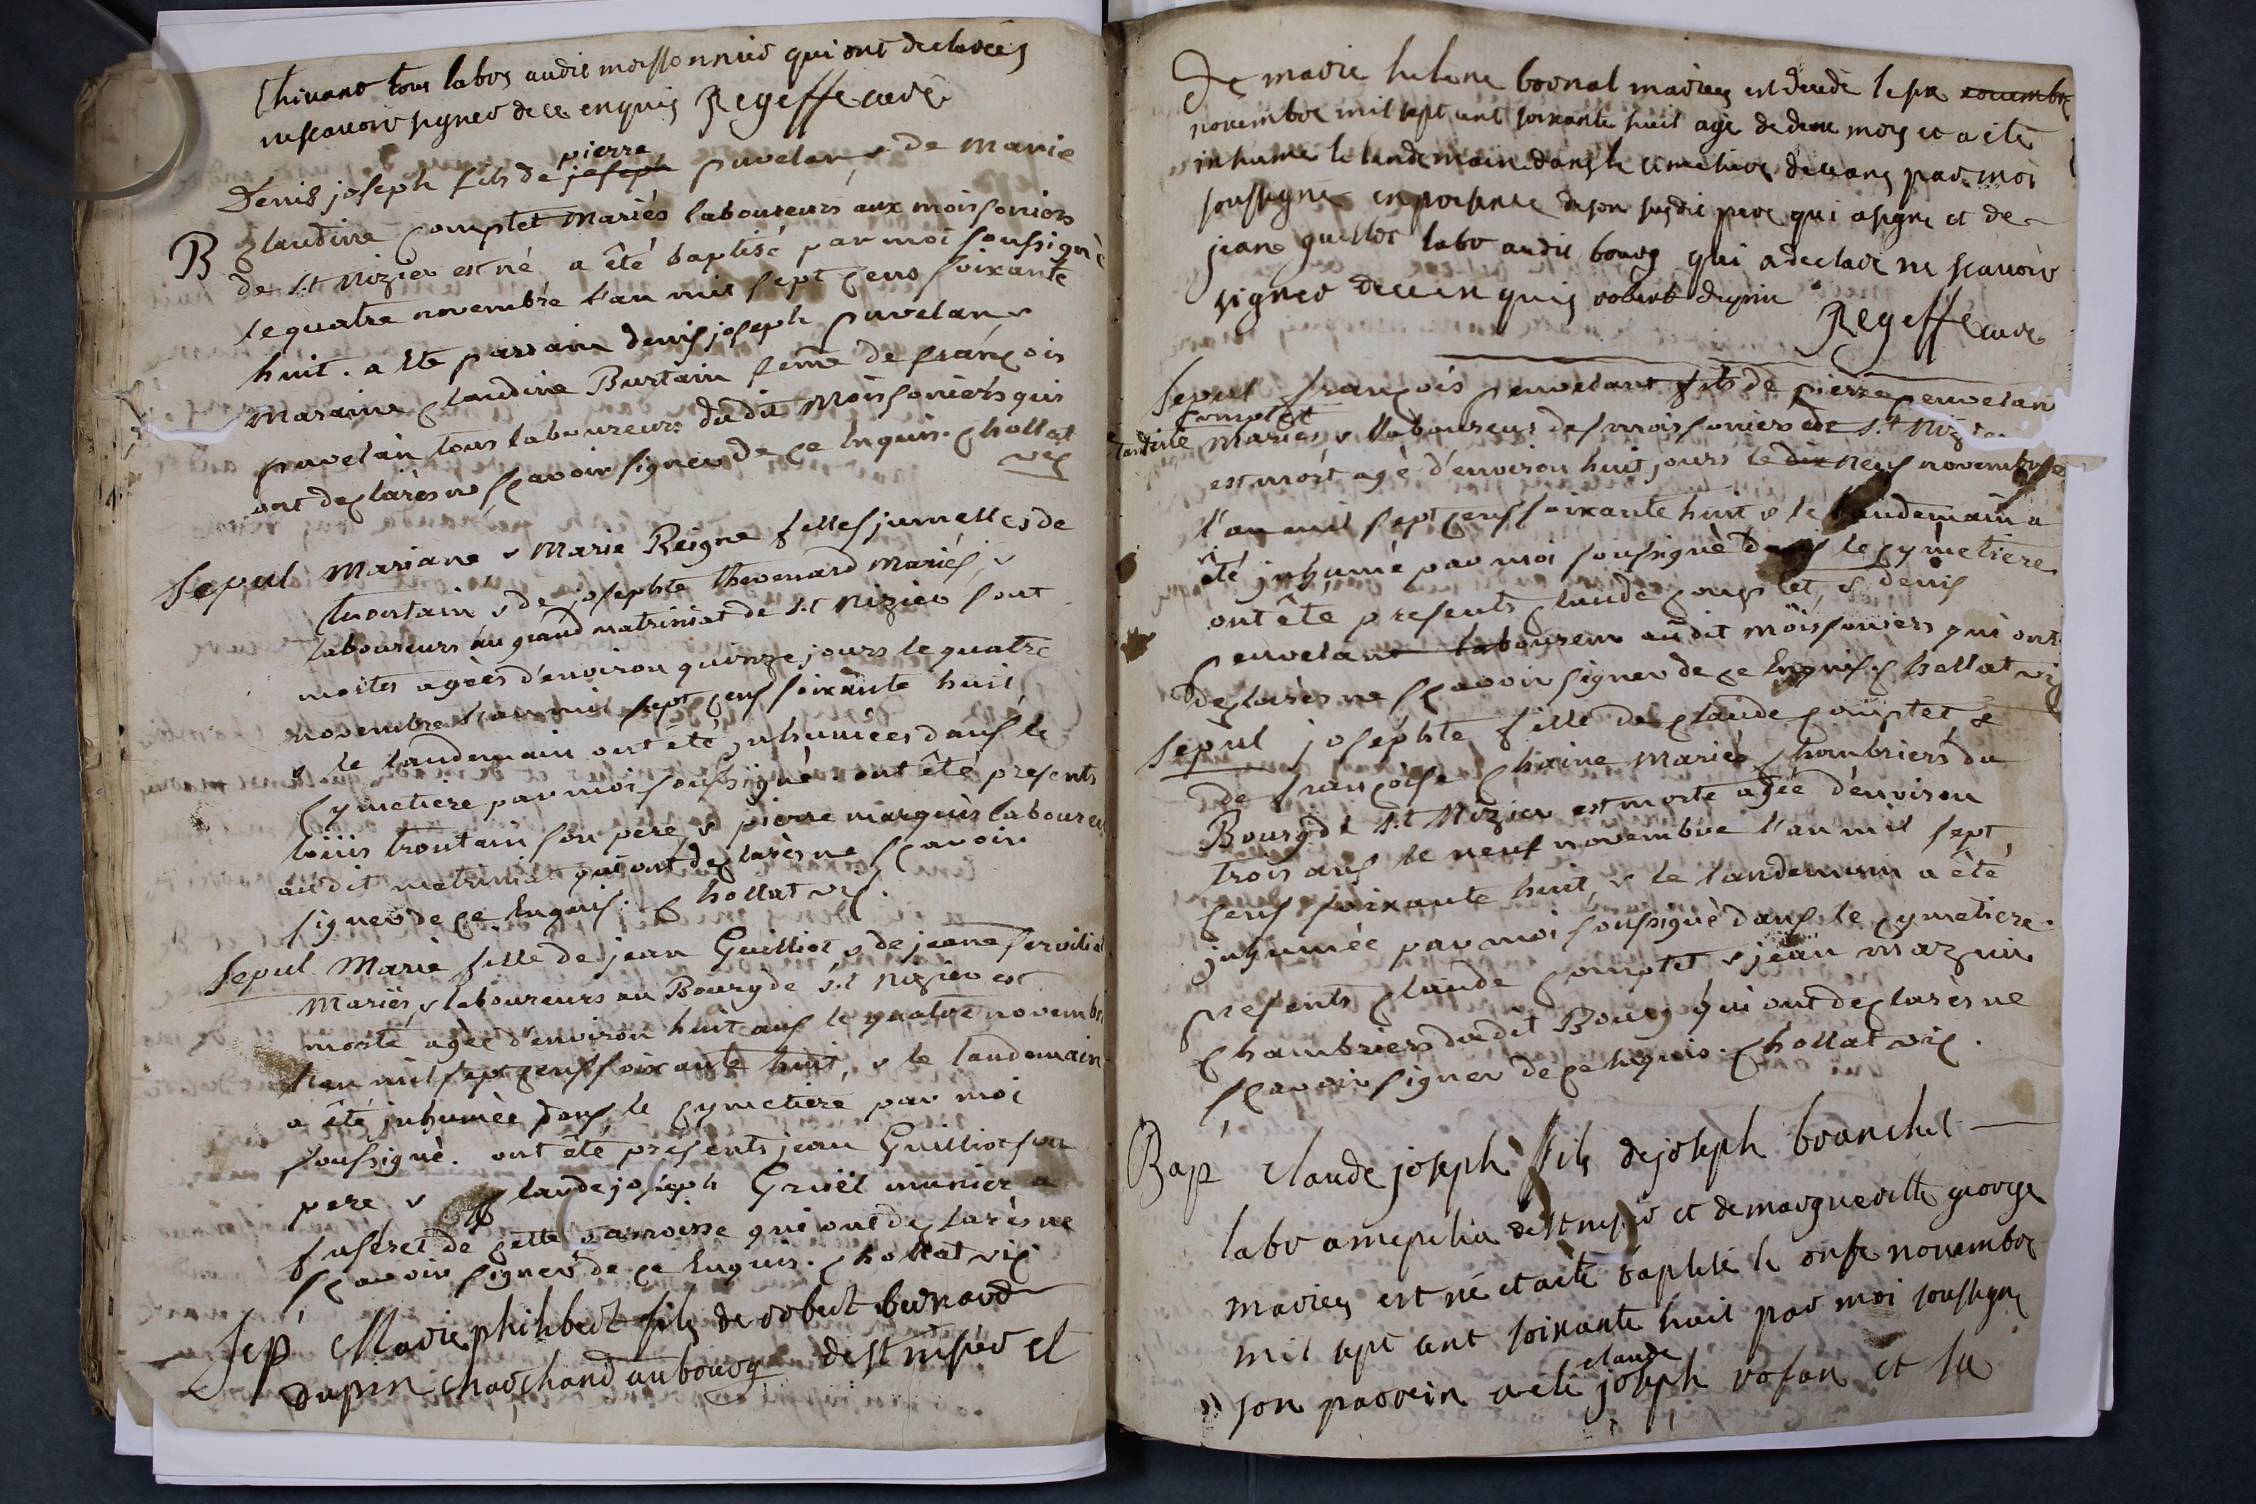 Thivant tous labrs audit moissonnier qui ont declareés
ne scavoir signer de ce enquis Regeffe curé
pierre
Denis joseph fils de joseph puvelan, & de Marie
B Claudine Comptet Mariés laboureurs aux moisoniers
de s.t Nizier est né a été baptisé par moi soussigné
le quatre novembre l'an mil sept cens soixante
huit. a été parrain denis joseph puvelan &
Maraine Claudine Burtain feme de françois
puvelan tous laboureurs dudit Moisoniers qui
ont declarés ne scavoir signer de ce Enquis. Chollat
vic
Sepul Mariane & Marie Reigne filles jumelles de
trontain & de josephte thevenard Mariés, &
laboureurs au grand matriniat de s.t Nizier sont
mortes agées d'environ quinze jours le quatre
novembre l'an mil sept cens soixante huit
& le landemain ont été inhumées dans le
Cymetiere par moi soussigné. ont été presents
loüis trontain son pere & pierre marguis laboureu
audit matriniat qui ont declarés ne scavoir
signer de ce Enquis. Chollat vic.
Sepul Marie fille de jean Guilliot & de jeane servilia
Mariés, & laboureurs au Bourg de s.t Nizier est
morte agée d'environ huit ans le quatre novembr
l'an mil sept cens soixante huit, & le landemain
a été inhumée dans le cymetiere par moi
soussigné. ont été presents jean Guilliot son
pere & Claude joseph Griël munier a
fuseret de cette paroisse qui ont declarés ne
scavoir signer de ce Enquis. Chollat vic
Sep' Marie philibert fils de robert bernard
dupin marchand au bourg de st nisier et
De marie helene bornal mariey est decedé le six novembre
novembre mil sept cent soixante huit agé de deux mois et a eté
inhumé le landemain dans le cimetiere deceans par moi
soussigne en presence de son susdit pere qui a signe et de
jean guilliot labr audit bourg qui a declaré ne scavoir
signer de ce enquis robert dupin
Regeffe curé
Sepul françois peuvelant fils de pierre peuvelan
Comptet
laudine Mariés & laboureurs des moisoniers de s.t Nizier
est mort agé d'environ huit jours le dix neuf novembre
l'an mil sept cens soixante huit & le landemain a
été inhumé par moi soussigné dans le cymetiere
ont été presents Claude Comptet, & denis
peuvelant laboureur audit moisoniers qui ont
declarés ne scavoir signer de ce Enquis. Chollat vic
Sepul josephte fille de Claude Comptet &
de françoise Chaine Mariés Chambriers du
Bourg de s.t Nizier est morte agée d'environ
trois ans le neuf novembre l'an mil sept
cens soixante huit & le landemain a été
inhumée par moi soussigné dans le cymetiere.
presents Claude Comptet & jean mazuir
Chambriers dudit Bourg qui ont declarés ne
scavoir signer de ce Enquis. Chollat vic.
Bap' Claude joseph fils de joseph branchet
labr de st nisier et de margueritte george
mariey est né et a eté baptisé le onse novembre
mil sept cent soixante huit par moi soussigne
claude
son parrein a eté joseph rosan et sa